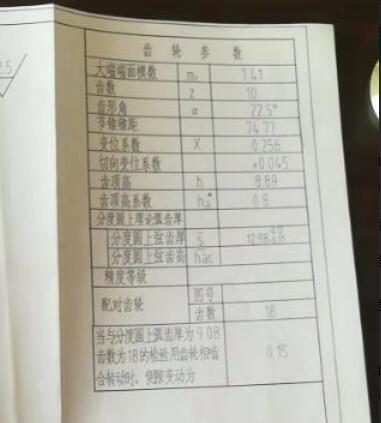 2.5
齿轮参数
大端端面模数 mₜ 7.41
齿数 z 10
齿形角 α 22.5°
节锥锥距 74.77
变位系数 X 0.256
切向变位系数 +0.045
齿顶高 h 8.89
齿顶高系数 h*a 0.8
分度圆上理论弧齿厚
分度圆上弦齿厚 s̄ 12.98
分度圆上弦齿高 h̄ac
精度等级
配对齿轮 图号
齿数 18
当与分度圆上弧齿厚为9.08
齿数为18的检验用齿轮相啮
合转动时，侧隙变动为 0.15